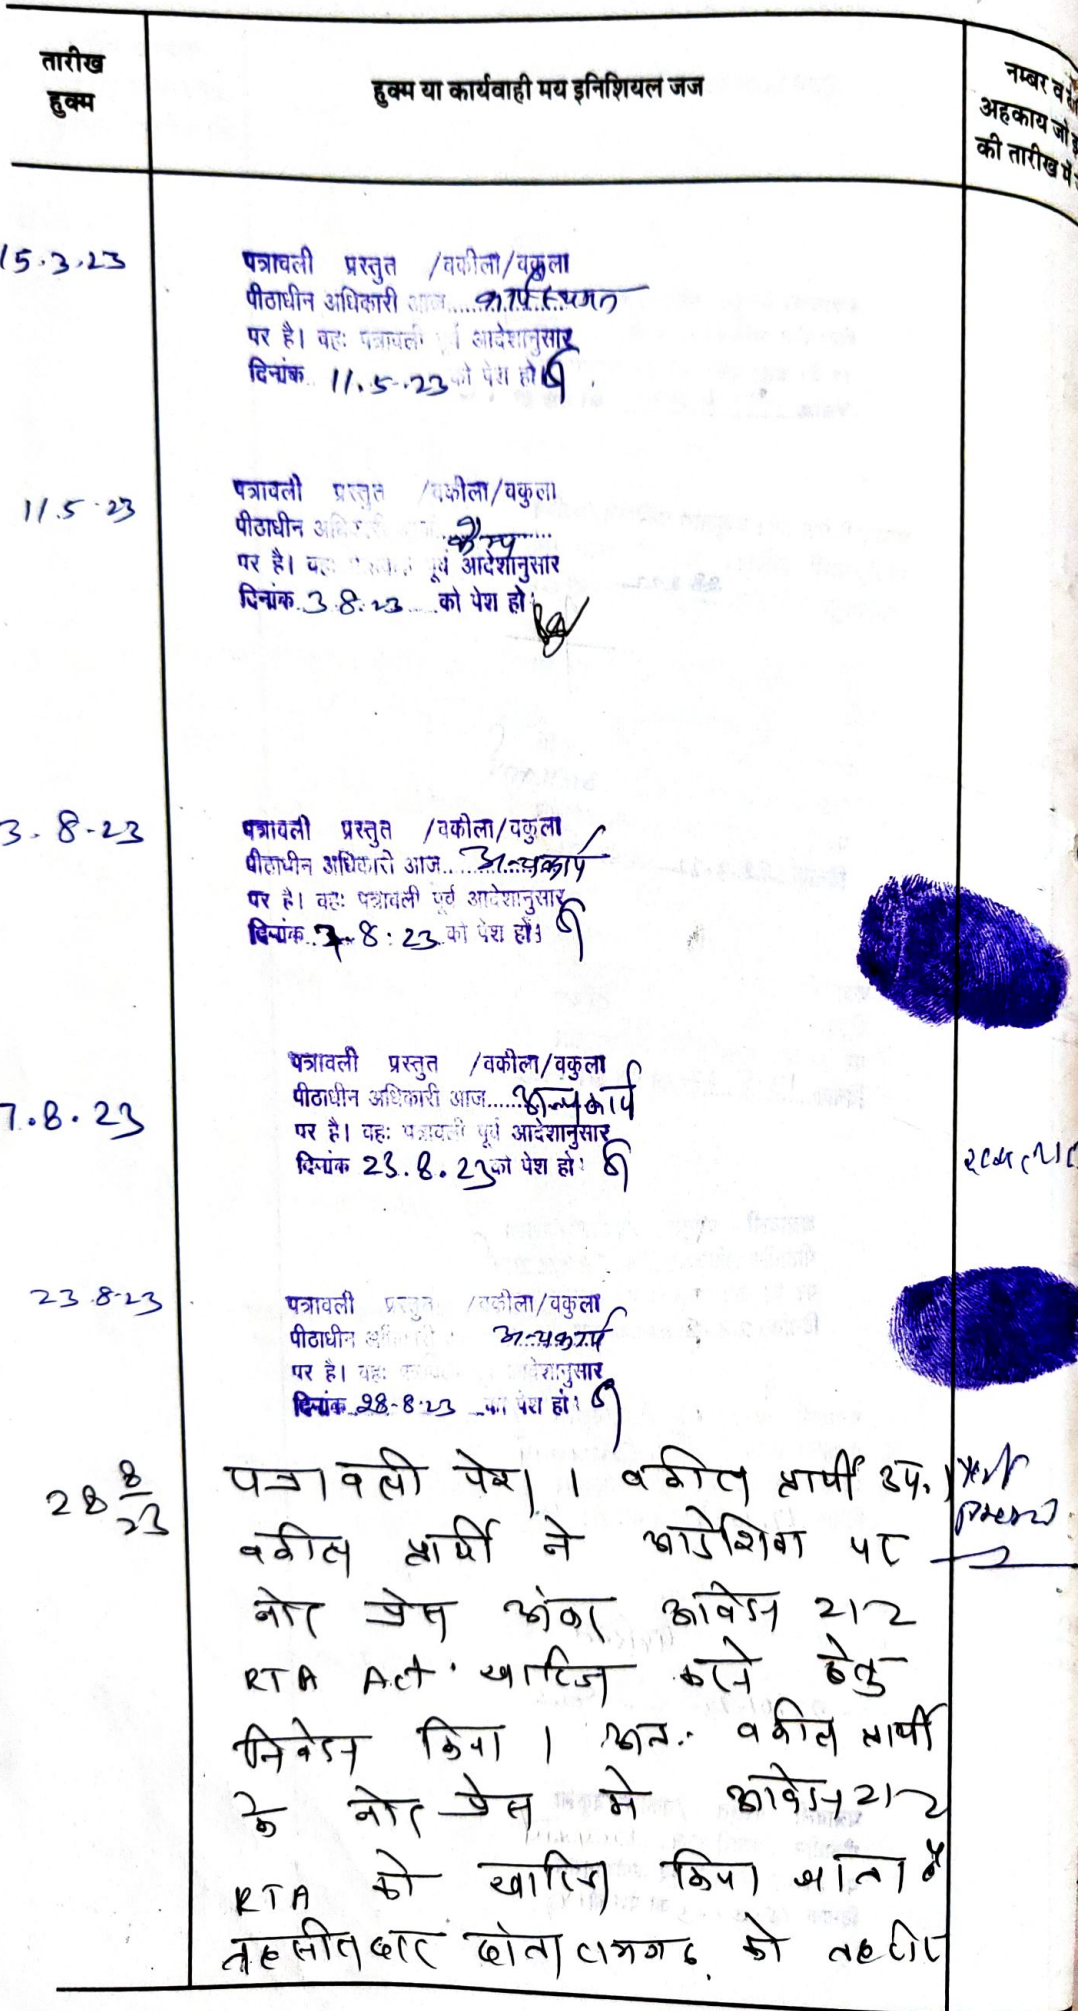 तारीख
हुक्म
हुक्म या कार्यवाही मय इनिशियल जज
नम्बर व
अहकाय जो
की तारीख में
15.3.23
पत्रावली प्रस्तुत /वकीला/वकुला
पीठाधीन अधिकारी आज
पर है। वहः पत्रावली पूर्व आदेशानुसार
दिनांक 11.5.23 को पेश हो
11.5.23
पत्रावली प्रस्तुत /वकीला/वकुला
पीठाधीन कैम्प
पर है। वहः पूर्व आदेशानुसार
दिनांक 3.8.23 को पेश हो
3.8-23
पत्रावली प्रस्तुत /वकीला/वकुला
पीठाधीन अधिकारी आज अन्यकार्य
पर है। वहः पत्रावली पूर्व आदेशानुसार
दिनांक 7-8:23 को पेश हो
7.8.23
पत्रावली प्रस्तुत /वकीला/वकुला
पीठाधीन अधिकारी आज अन्यकार्य
पर है। वहः पत्रावली पूर्व आदेशानुसार
दिनांक 23.8.23 को पेश हो
23.8-23
पत्रावली प्रस्तुत /वकीला/वकुला
पीठाधीन अन्यकार्य
पर है। वहः आदेशानुसार
दिनांक 28-8-23 को पेश हो
28 8/23
पत्रावली पेश। वकील प्रार्थी उप.।
वकील प्रार्थी ने आदेशिका पर
नोट प्रेस अंकर आवेदन 212
RTA Act. खारिज करने हेतु
निवेदन किया। अतः वकील प्रार्थी
के नोट प्रेस मे आवेदन 212
RTA को खारिज किया जाता है
तहसीलदार दांतारामगढ़ को तहरीर